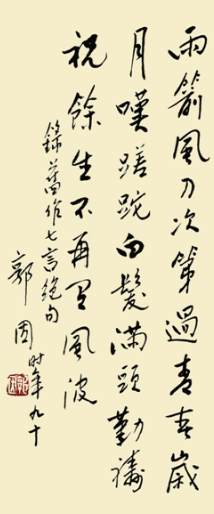 雨箭風刀次第過青春歲
月嘆蹉跎白髮滿頭勤禱
祝餘生不再有風波
錄舊作七言絕句
郭因時年九十